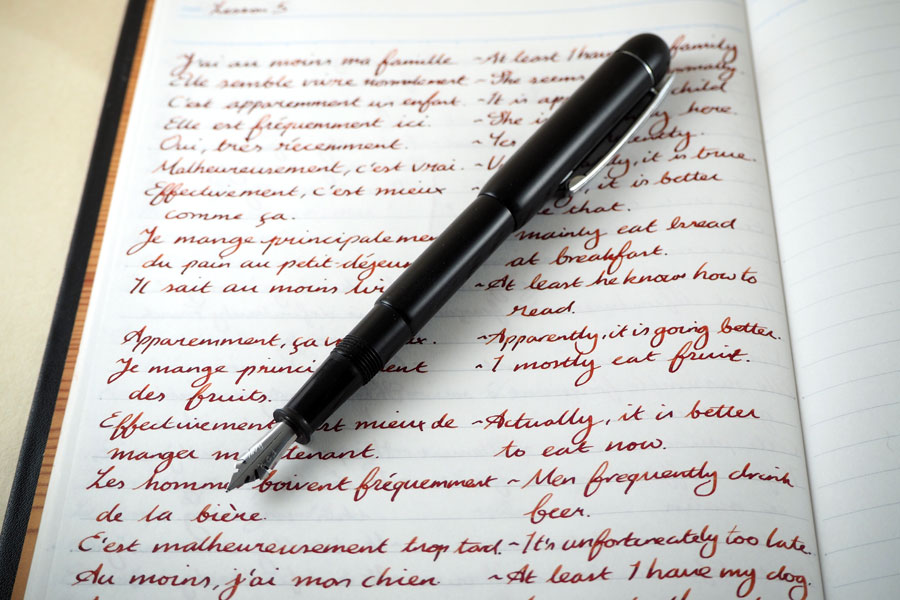 Lesson 5
J'ai au moins ma famille ~At least I have family
Elle semble vivre normalement ~She seems
C'est apparemment un enfant. ~It is child
Elle est fréquemment ici. ~She here.
Oui, très récemment. ~Yes
Malheureusement, c'est vrai. it is true.
Effectivement, c'est mieux it is better
comme ça. that.
Je mange mainly eat bread
du pain au petit at breakfast.
Il sait au moins ~At least he knows how to
read.
Apparemment, ça ~Apparently, it is going better.
Je mange ~I mostly eat fruit.
des fruits.
Effectivement mieux de ~Actually, it is better
manger to eat now.
Les boivent fréquemment ~Men frequently drink
de la bière. beer.
C'est malheureusement trop tard. ~It's unfortunately too late.
Au moins, j'ai mon chien ~At least I have my dog.